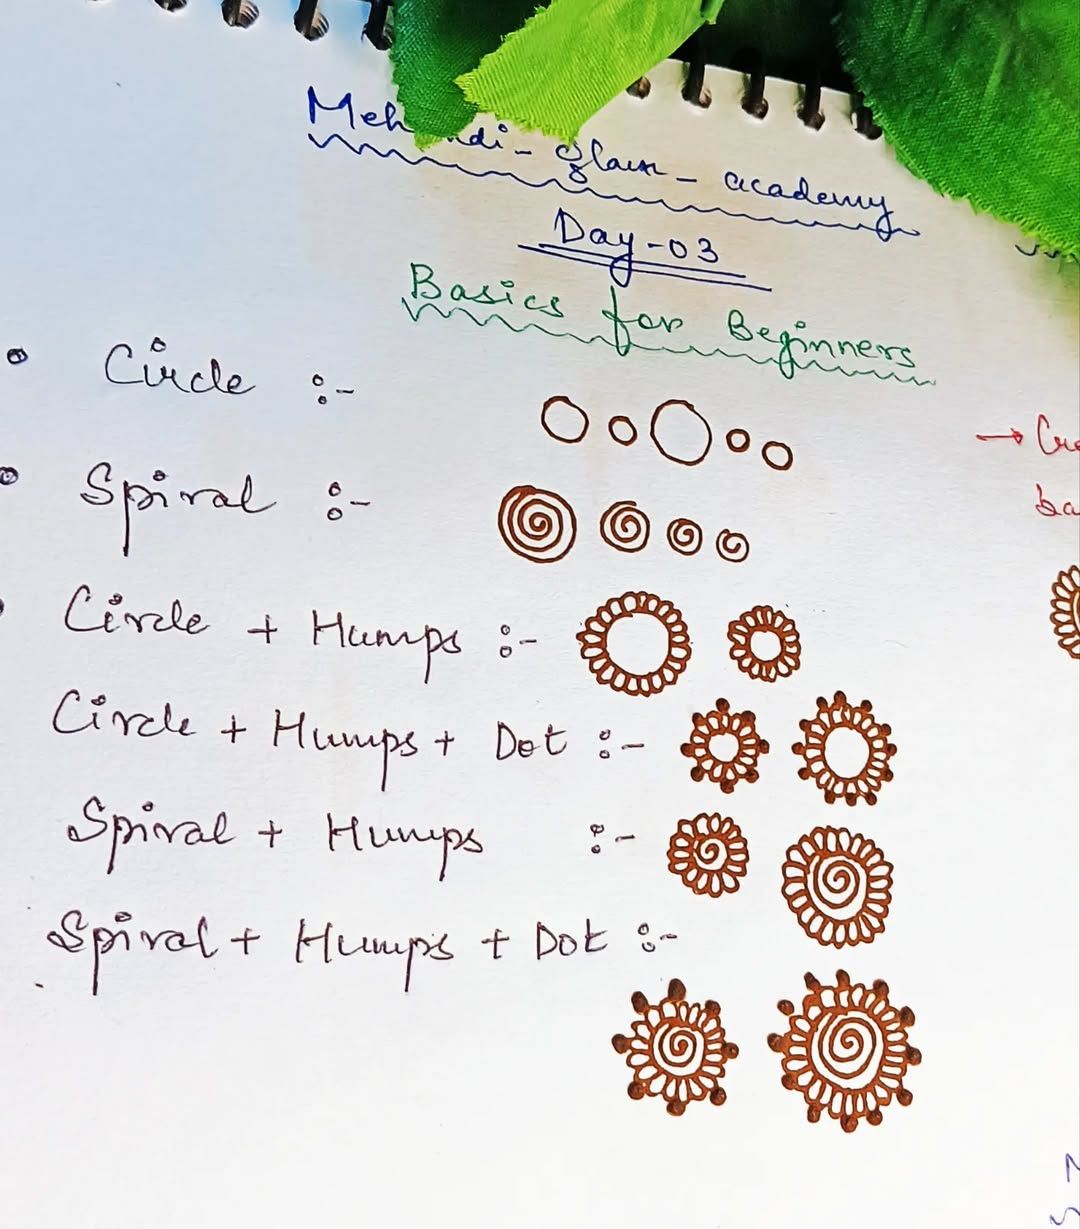 Mehndi - glam - academy
Day-03
Basics for Beginners
Circle :-
Spiral :-
Circle + Humps :-
Circle + Humps + Dot :-
Spiral + Humps :-
Spiral + Humps + Dot :-